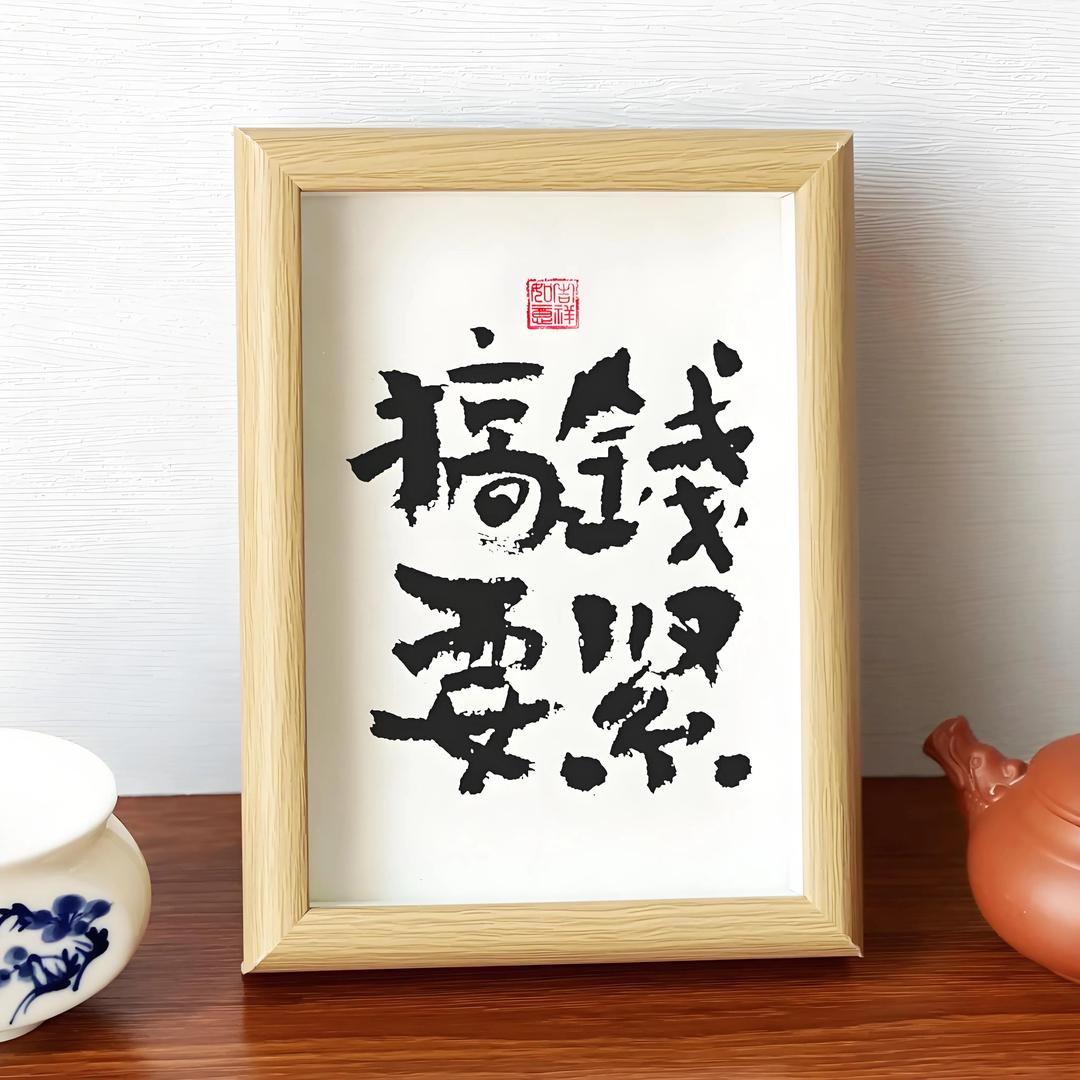 吉祥如意
搞錢
要緊